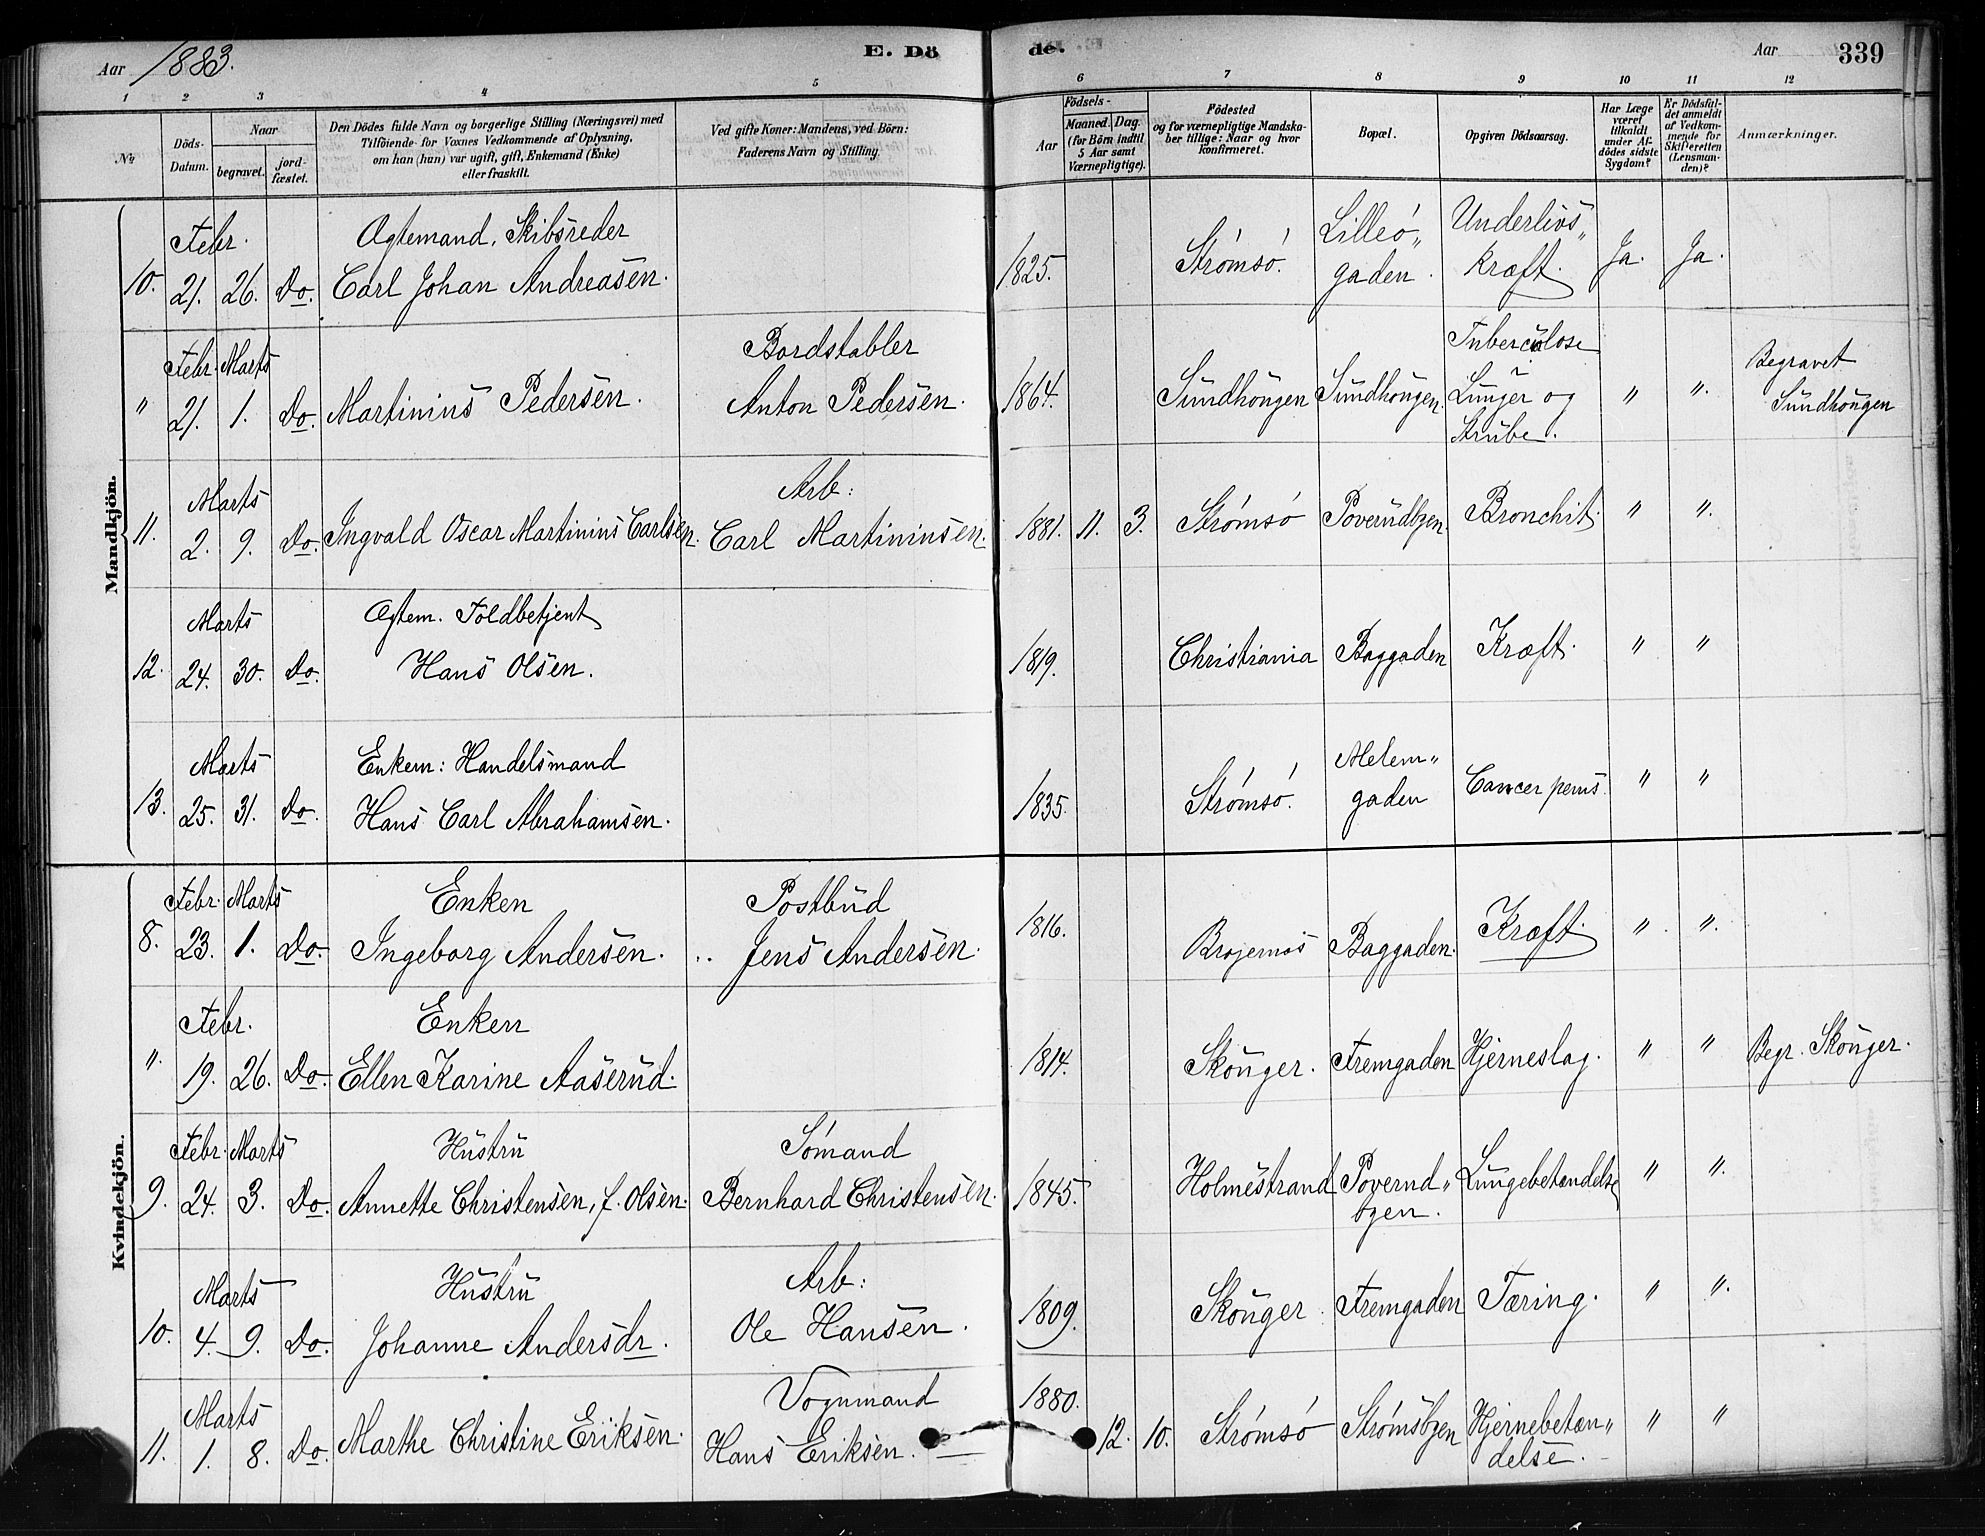 Aar 1883.
E. Dö
de.
Aar
339
1 2 3 4 5 6 7 8 9 10 11 12
No
Döds-Datum.
Naar
begravet.
jord-fæstet.
Den Dödes fulde Navn og borgerlige Stilling (Næringsvei) med
Tilföiende for Voxnes Vedkommende af Oplysning,
om han (hun) var ugift, gift, Enkemand (Enke)
eller fraskilt.
Ved gifte Koner: Mandens, ved Börn:
Faderens Navn og Stilling
Födsels-
Aar
Maaned. Dag.
(for Börn indtil
5 Aar samt
Værnepligtige).
Födested
og for værnepligtige Mandska-
ber tillige: Naar og hvor
konfirmeret.
Bopæl.
Opgiven Dödsaarsag.
Har Læge
været
tilkaldt
under Af-
dödes sidste
Sygdom?
Er Dödsfal-
det anmeldt
af Vedkom-
mende for
Skifteretten
(Lensman-
den)?
Anmærkninger.
Mandkjön.
Febr. Ægtemand, Skibsreder Lilleö„ Underlivs„
10. 21. 26. Do. Carl Johan Andreasen. 1825. Strømsø. gaden. kræft. Ja. Ja.
Febr. Marts Bordstabler Tuberculose Begravet
" 21. 1. Do. Martinius Pedersen. Anton Pedersen. 1864. Sundhougen Sundhougen. Lunger og " " Sundhougen
Strube.
Marts Arb:
11. 2. 9. Do. Ingvald Oscar Martinius Carlsen. Carl Martininsen. 1881. 11. 3. Strømsø Poverudbgen. Bronchit. " "
Marts Ægtem. Toldbetjent
12. 24. 30. Do. Hans Olsen. 1819. Christiania Baggaden Kræft. " "
Marts Enkem: Handelsmand Melem„
13. 25. 31. Do. Hans Carl Abrahamsen. 1835. Strømsø. gaden Cancer penis. " "
Kvindekjön.
Febr. Marts Enken Postbud
8. 23. 1. Do. Ingeborg Andersen. .. Jens Andersen. 1816. Bragernæs Baggaden. Kræft. " "
Febr. Enken
" 19. 26. Do. Ellen Karine Aaserud. 1814. Skouger. Fremgaden Hjerneslag. " " Begr. Skouger.
Febr. Marts Hustru Sømand
9. 24. 3. Do. Annette Christensen, f. Olsen. Bernhard Christensen. 1845. Holmestrand Poverud„ Lungebetændelse " "
bgen.
Marts Hustru Arb:
10. 4. 9. Do. Johanne Andersdr. Ole Hansen. 1809. Skouger Fremgaden Tæring. " "
Marts Vognmand
11. 1. 8. Do. Marthe Christine Eriksen. Hans Eriksen. 1880. 12. 10. Strømsø Strømsbgen Hjernebetæn„ " "
delse.